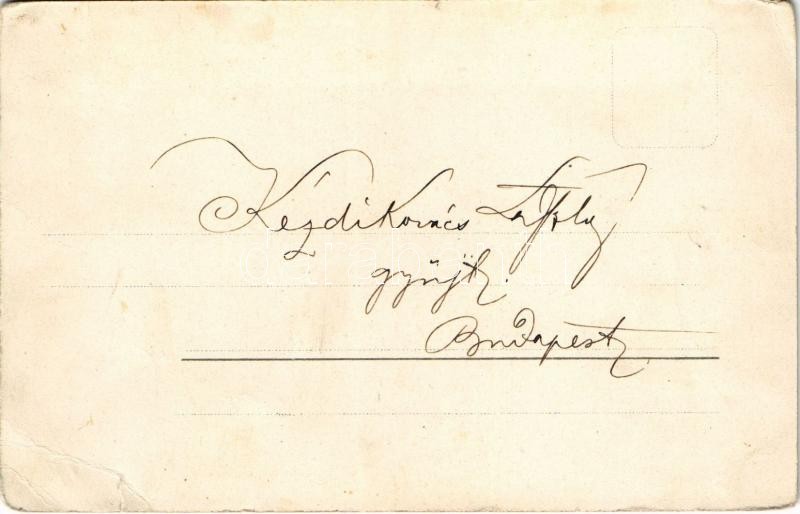 Kézdi Kovács László
gyűjt.
Budapest